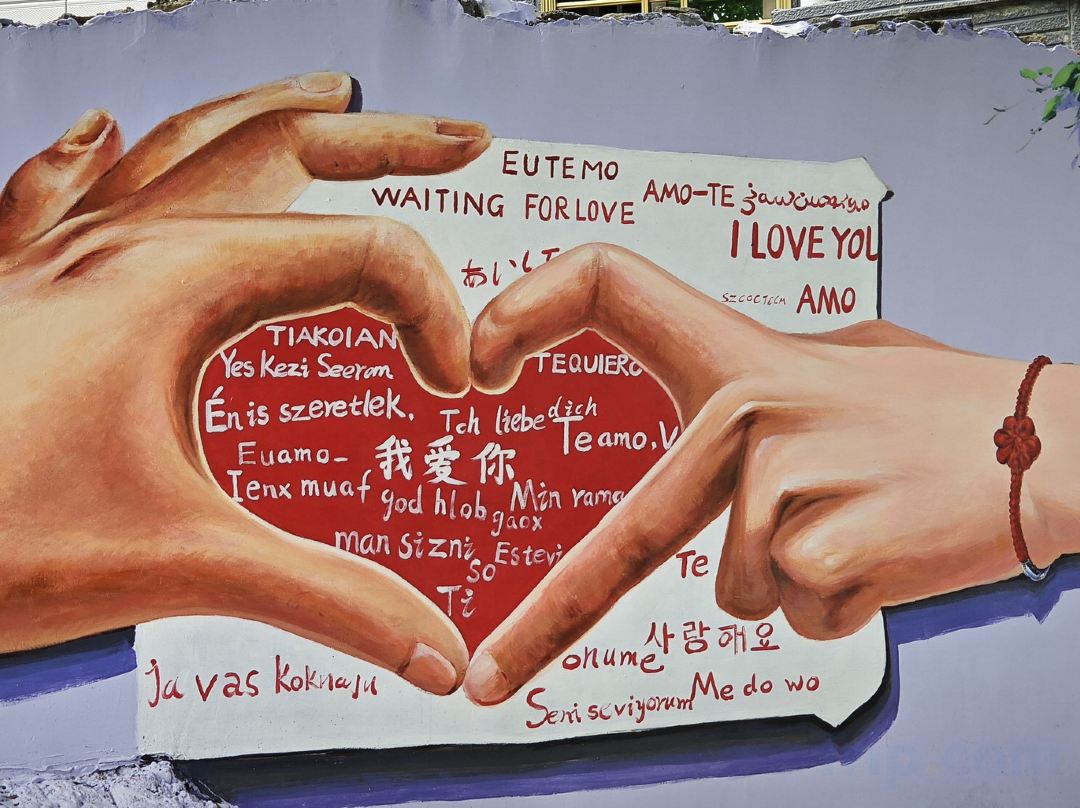 EUTEMO
WAITING FOR LOVE
AMO-TE
I LOVE YOU
あいして
AMO
TIAKOIAN
Yes Kezi Seerom
TEQUIERO
Én is szeretlek.
Tch liebe dich
Te amo.
Euamo_
我爱你
Ienx muaf
god hlob
gaox
Min rama
man sizni
so
Estevi
Ti
Te
사랑해요
ohume
ja vas Koknaju
Seni seviyorum
Me do wo